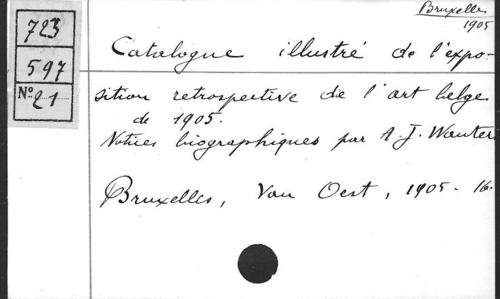 Bruxelles
1905
723
597
No 21
Catalogue illustré de l'expo-
sition retrospective de l'art belge
de 1905.
Notices biographiques par A. J. Wauter
Bruxelles, Van Oest, 1905. 16.